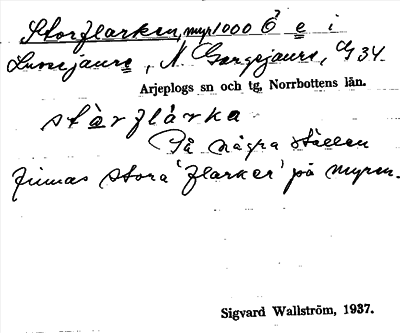 Storflarken, myr 1000 Ö e i
Luvsjaure, N. Gargejaure, G 34.
Arjeplogs sn och tg, Norrbottens län.
stɑ̀rflárka
På några ställen
finnas stora 'flarker' på myren.
Sigvard Wallström, 1937.